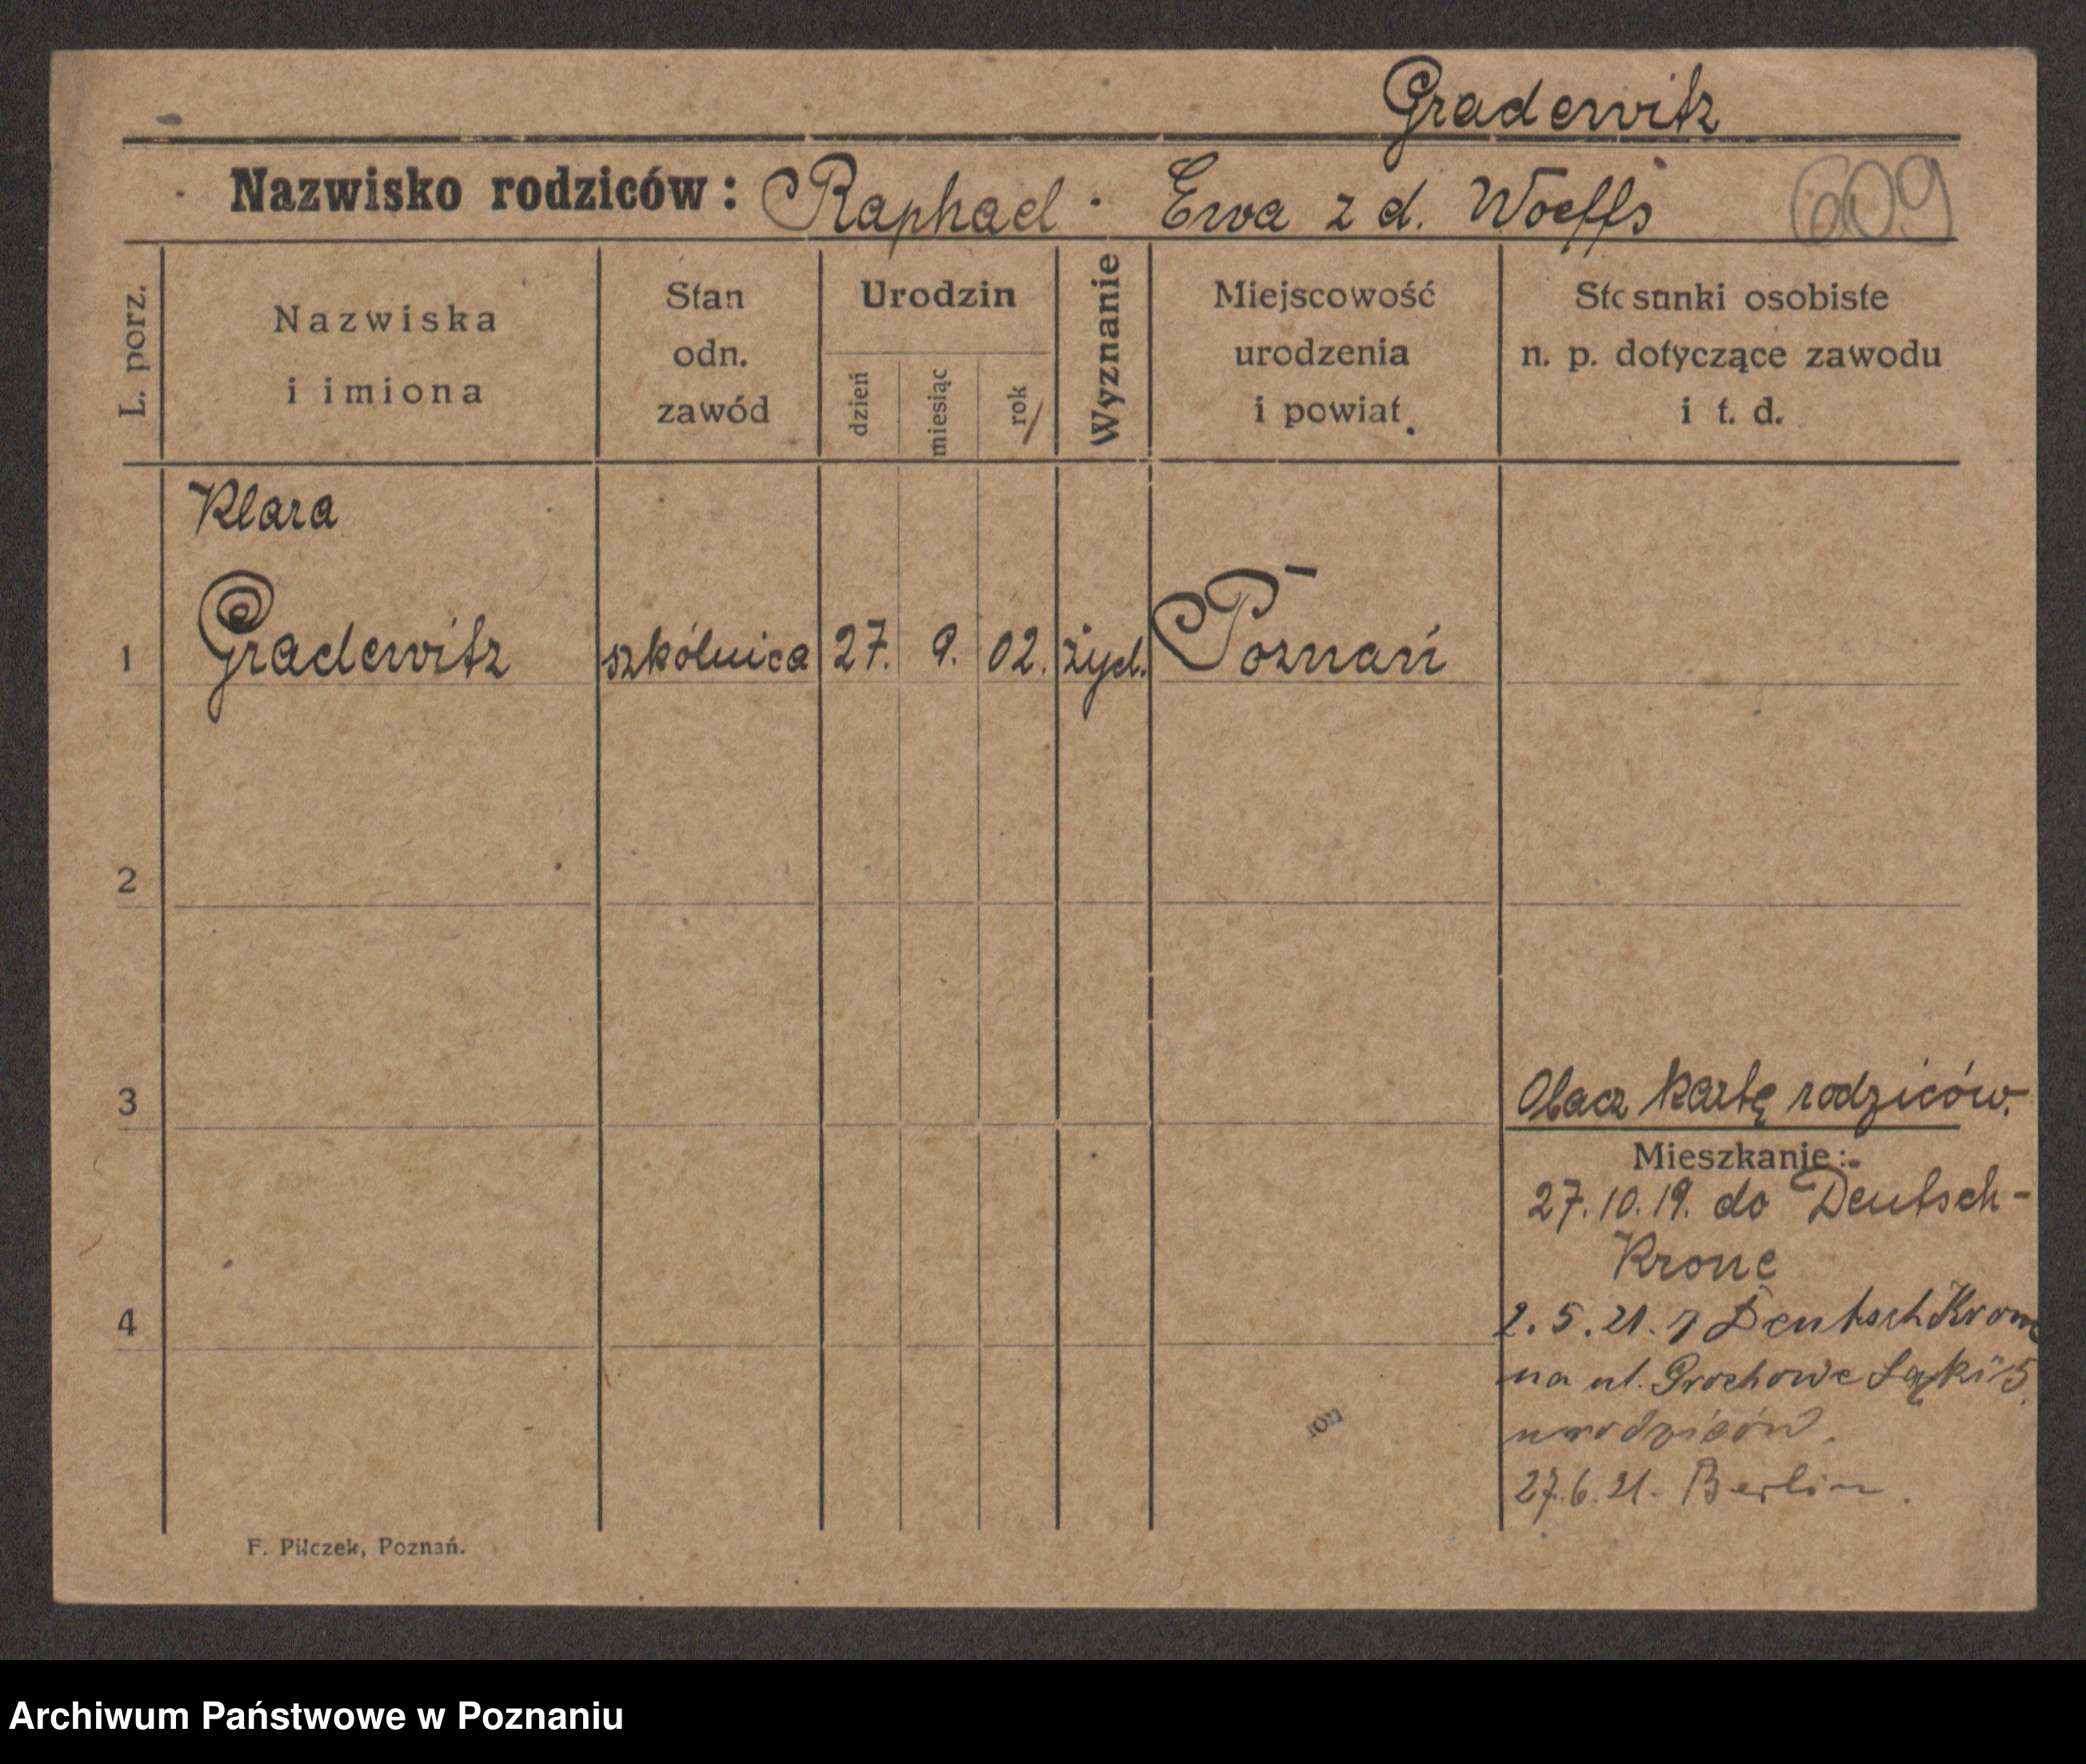 Gradewitz
Nazwisko rodziców: Raphael · Ewa z d. Woeffs
609
L. porz.
Nazwiska
i imiona
Stan
odn.
zawód
Urodzin
dzień
miesiąc
rok
Wyznanie
Miejscowość
urodzenia
i powiat
Stosunki osobiste
n. p. dotyczące zawodu
i t. d.
Klara
1 Gradewitz szkólnica 27. 9. 02. żyd. Poznań
2
3
Obacz kartę rodziców.
Mieszkanie:
27.10.19. do Deutsch-
Krone
4
2.5.21. z Deutsch Krone
na ul. Grochowe Łąki 5
u rodziców.
27.6.21. Berlin.
F. Pilczek, Poznań.
Archiwum Państwowe w Poznaniu